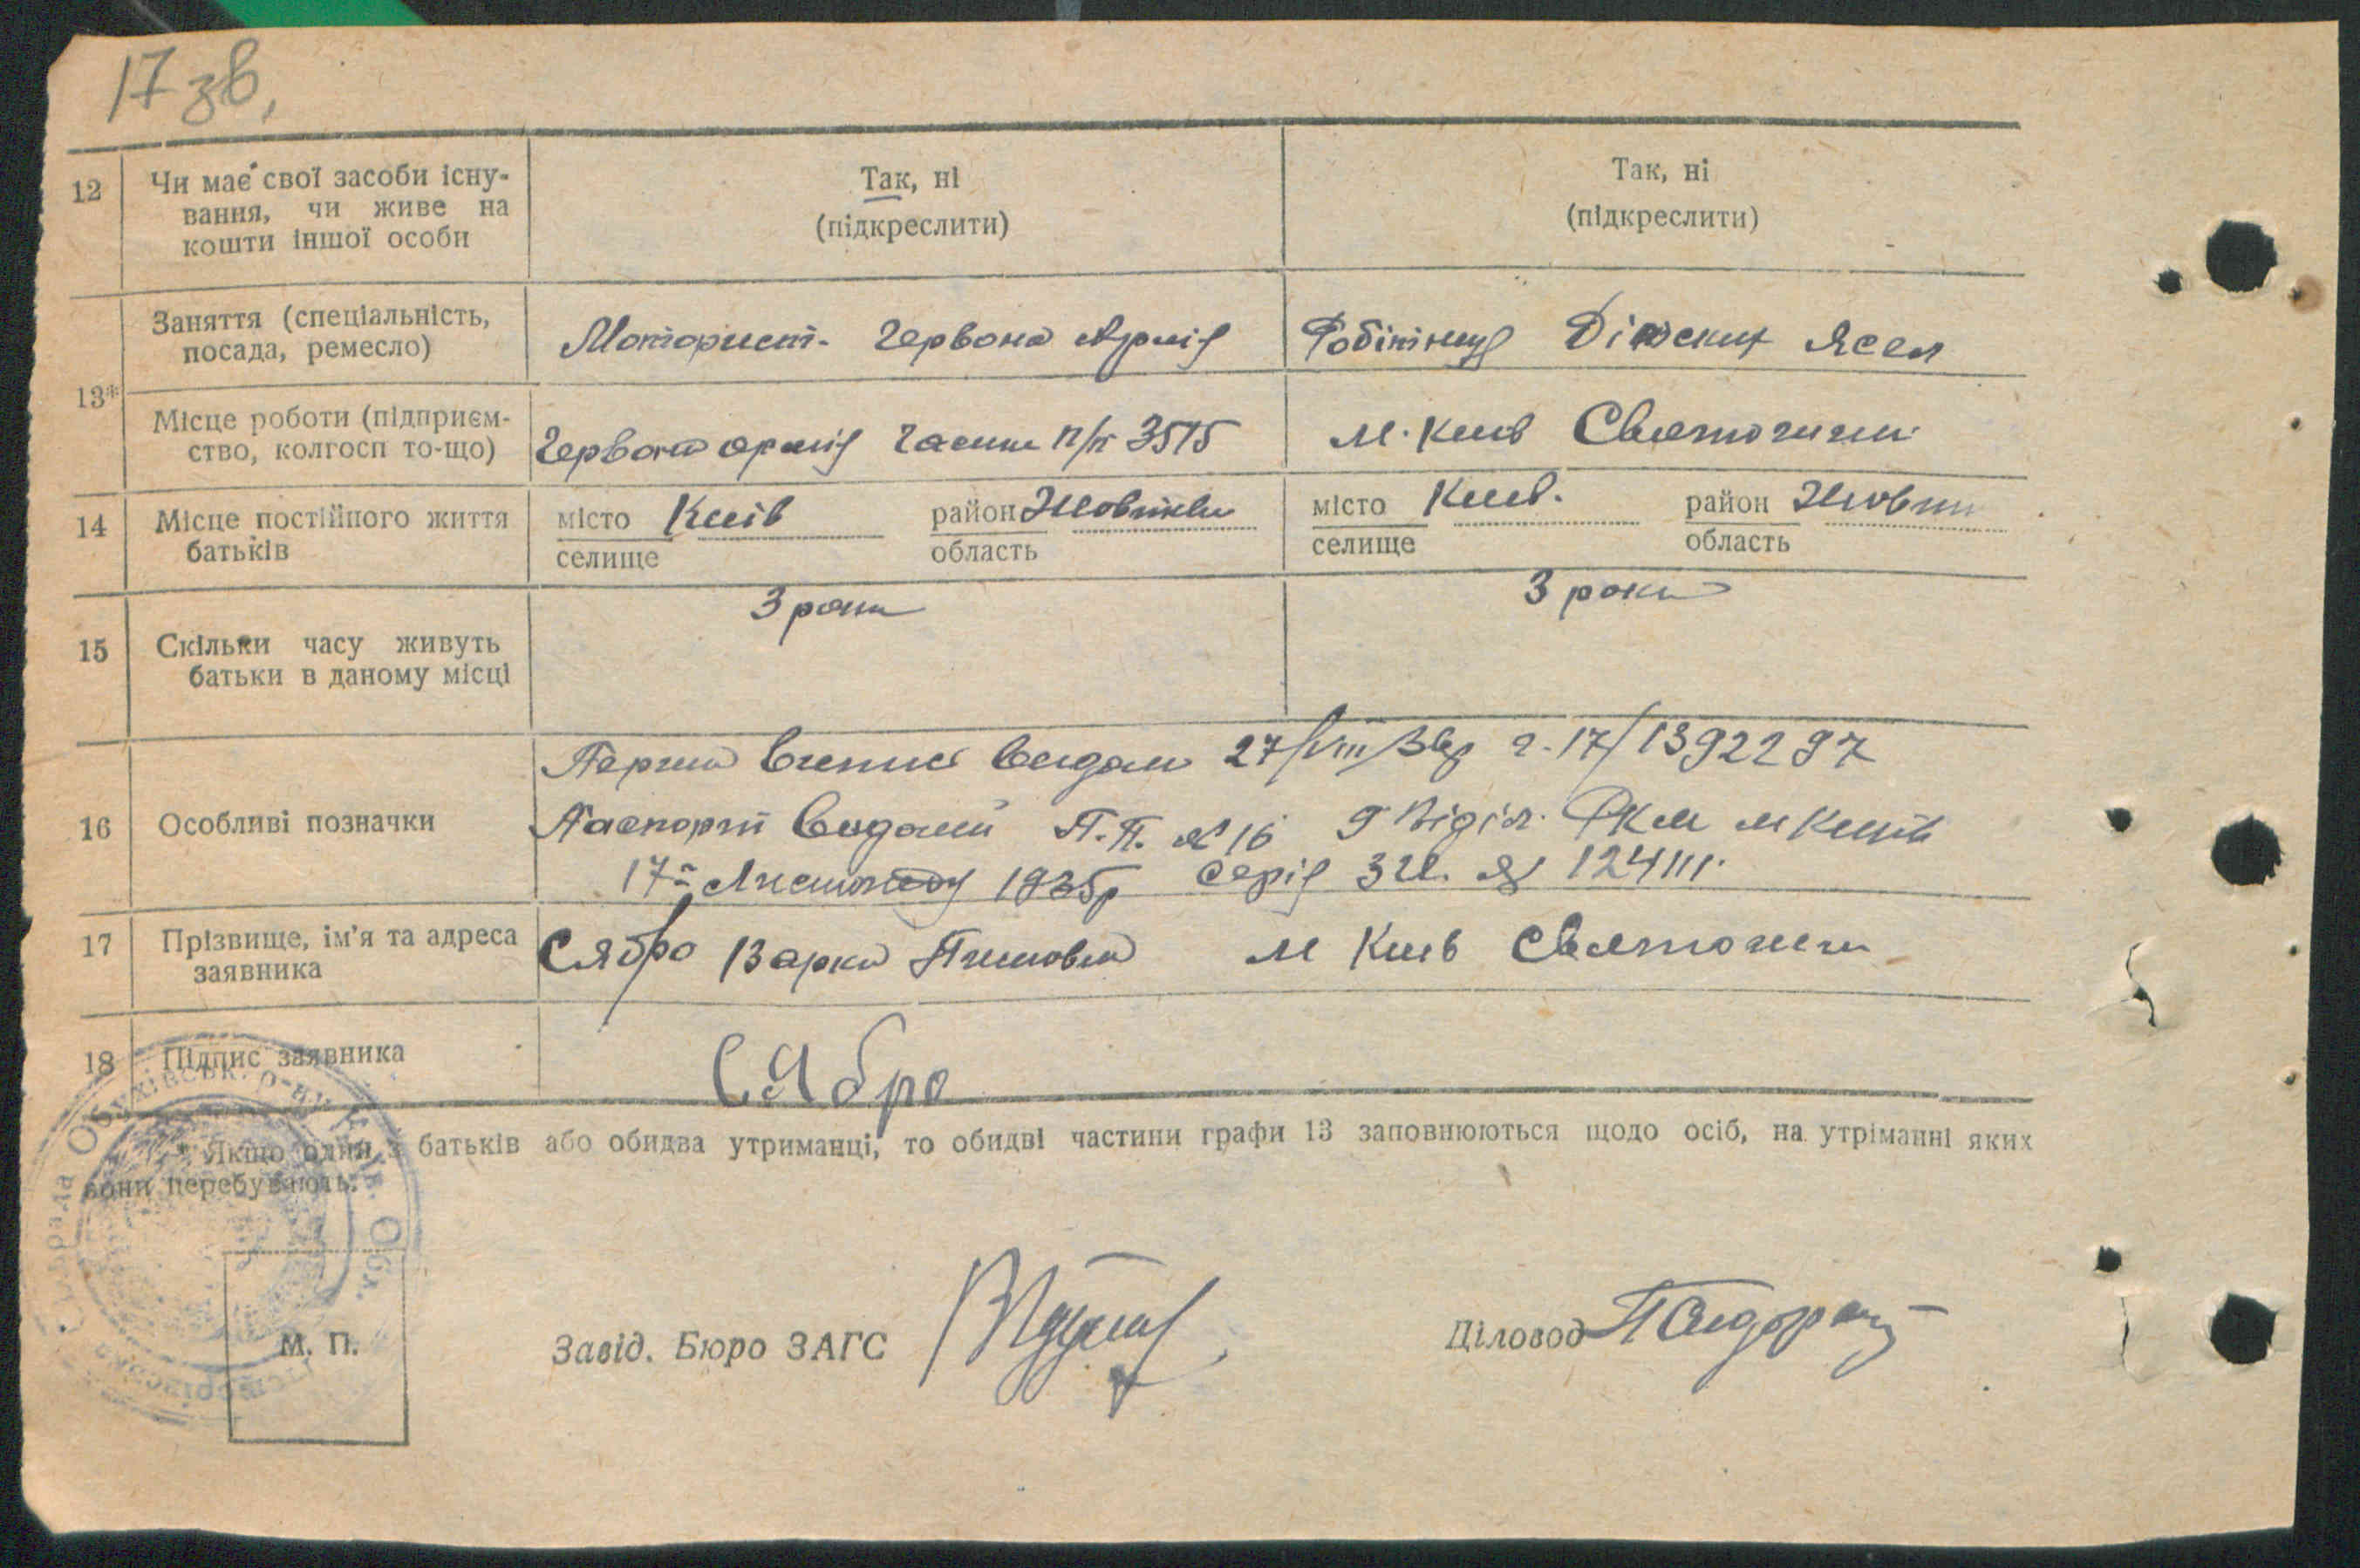 17 зв.
12 Чи має свої засоби існу-
вання, чи живе на
кошти іншої особи
Так, ні
(підкреслити)
Так, ні
(підкреслити)
13*
Заняття (спеціальність,
посада, ремесло)
Моторист. Червона Армія
Робітниця Дітских Ясел
Місце роботи (підприєм-
ство, колгосп то-що)
Червона армія Части п/п 3515
м. Киів Святошин
14 Місце постійного життя
батьків
місто Киів район Жовтнев
селище область
місто Киів. район Жовтн
селище область
15 Скільки часу живуть
батьки в даному місці
3 роки
3 роки
16 Особливі позначки
видали 27/VIII г. 17/1392297
Паспорт Виданий П.П. № 16 9 Відділ. РКМ м Київ
17го Листопаду 1935р Серія № 124111.
17 Прізвище, ім'я та адреса
заявника
Сябро Варка м Киів Святошин
18 Підпис заявника
Сябро
* Якщо один з батьків або обидва утриманці, то обидві частини графи 13 заповнюються щодо осіб, на утріманні яких
вони перебувають.
Обухівськ. р-ну Київ. Обл.
М. П.
Завід. Бюро ЗАГС
Діловод